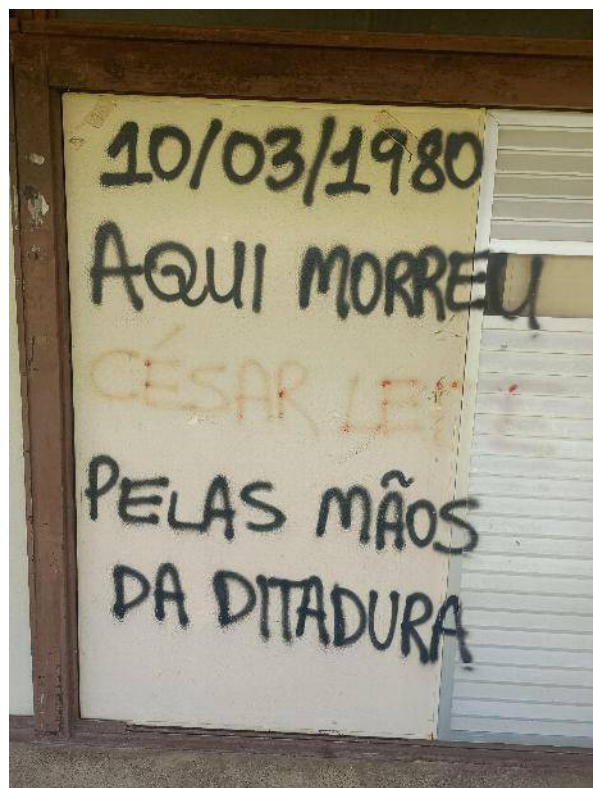 10/03/1980
AQUI MORREU
CÉSAR LEITE
PELAS MÃOS
DA DITADURA